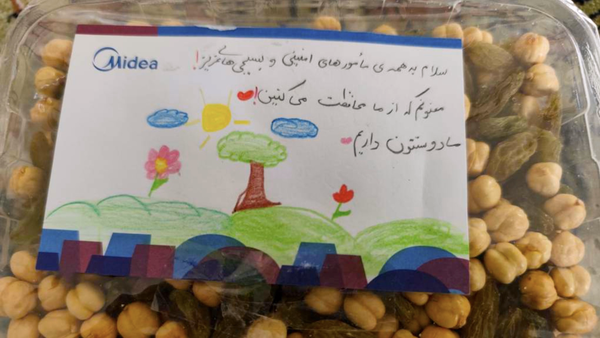 Midea
سلام به همه‌ی مأمورهای امنیتی و بسیجی‌های عزیز!
ممنونم که از ما محافظت می‌کنین!
ما دوستتون داریم